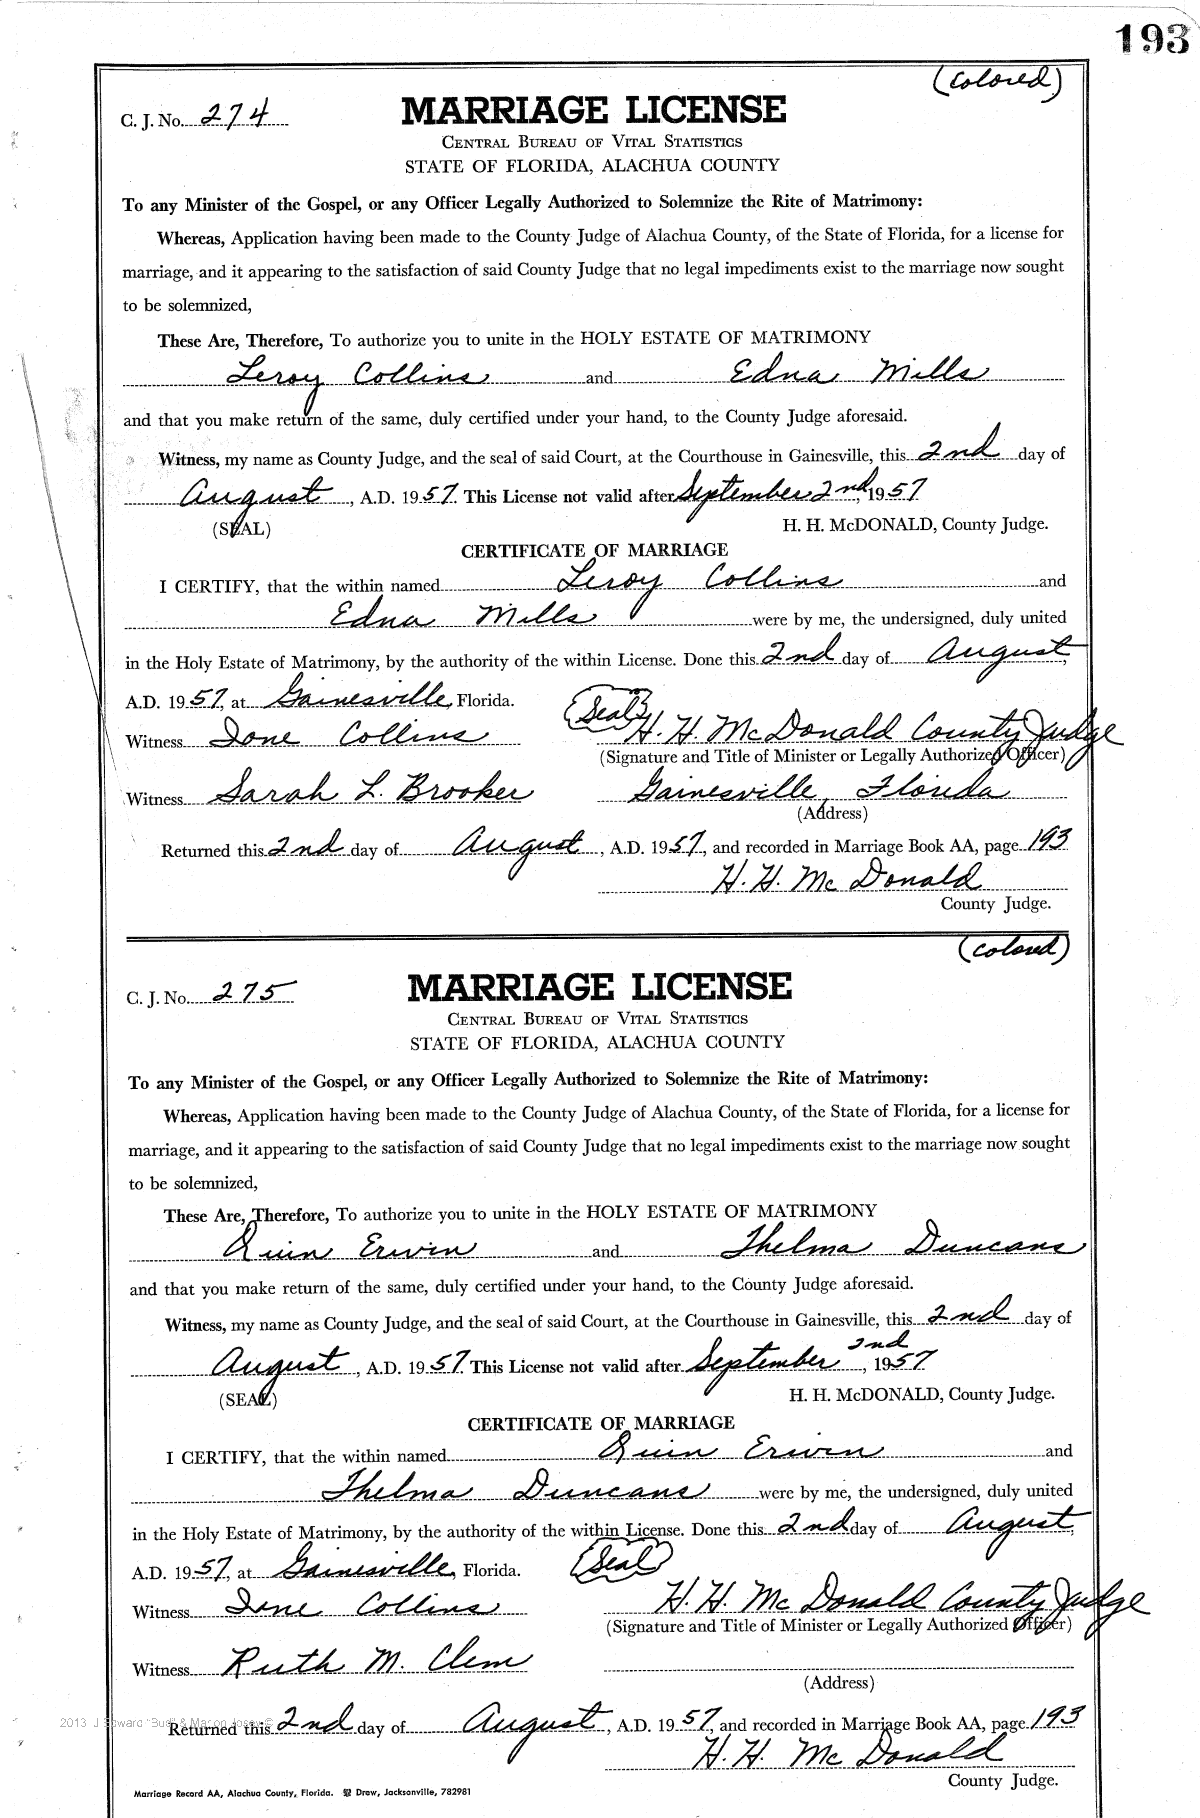 193
(colored)
C. J. No. 274 MARRIAGE LICENSE
CENTRAL BUREAU OF VITAL STATISTICS
STATE OF FLORIDA, ALACHUA COUNTY
To any Minister of the Gospel, or any Officer Legally Authorized to Solemnize the Rite of Matrimony:
Whereas, Application having been made to the County Judge of Alachua County, of the State of Florida, for a license for
marriage, and it appearing to the satisfaction of said County Judge that no legal impediments exist to the marriage now sought
to be solemnized,
These Are, Therefore, To authorize you to unite in the HOLY ESTATE OF MATRIMONY
Leroy Collins and Edna Mills
and that you make return of the same, duly certified under your hand, to the County Judge aforesaid.
Witness, my name as County Judge, and the seal of said Court, at the Courthouse in Gainesville, this 2nd day of
August, A.D. 1957. This License not valid after September 2nd, 1957
(SEAL) H. H. McDONALD, County Judge.
CERTIFICATE OF MARRIAGE
I CERTIFY, that the within named Leroy Collins and
Edna Mills were by me, the undersigned, duly united
in the Holy Estate of Matrimony, by the authority of the within License. Done this 2nd day of August,
A.D. 1957, at Gainesville, Florida. (Seal)
Witness Ione Collins H. H. McDonald County Judge
(Signature and Title of Minister or Legally Authorized Officer)
Witness Sarah L. Brooker Gainesville, Florida
(Address)
Returned this 2nd day of August, A.D. 1957, and recorded in Marriage Book AA, page 193
H. H. McDonald
County Judge.
(colored)
C. J. No. 275 MARRIAGE LICENSE
CENTRAL BUREAU OF VITAL STATISTICS
STATE OF FLORIDA, ALACHUA COUNTY
To any Minister of the Gospel, or any Officer Legally Authorized to Solemnize the Rite of Matrimony:
Whereas, Application having been made to the County Judge of Alachua County, of the State of Florida, for a license for
marriage, and it appearing to the satisfaction of said County Judge that no legal impediments exist to the marriage now sought
to be solemnized,
These Are, Therefore, To authorize you to unite in the HOLY ESTATE OF MATRIMONY
Quin Erwin and Thelma Duncans
and that you make return of the same, duly certified under your hand, to the County Judge aforesaid.
Witness, my name as County Judge, and the seal of said Court, at the Courthouse in Gainesville, this 2nd day of
August, A.D. 1957. This License not valid after September 2nd, 1957
(SEAL) H. H. McDONALD, County Judge.
CERTIFICATE OF MARRIAGE
I CERTIFY, that the within named Quin Erwin and
Thelma Duncans were by me, the undersigned, duly united
in the Holy Estate of Matrimony, by the authority of the within License. Done this 2nd day of August,
A.D. 1957, at Gainesville, Florida. (Seal)
Witness Ione Collins H. H. McDonald County Judge
(Signature and Title of Minister or Legally Authorized Officer)
Witness Ruth M. Clem
(Address)
2013 J Edward "Bud" & Marion Josey ©
Returned this 2nd day of August, A.D. 1957, and recorded in Marriage Book AA, page 193
H. H. McDonald
County Judge.
Marriage Record AA, Alachua County, Florida. Drew, Jacksonville, 782981